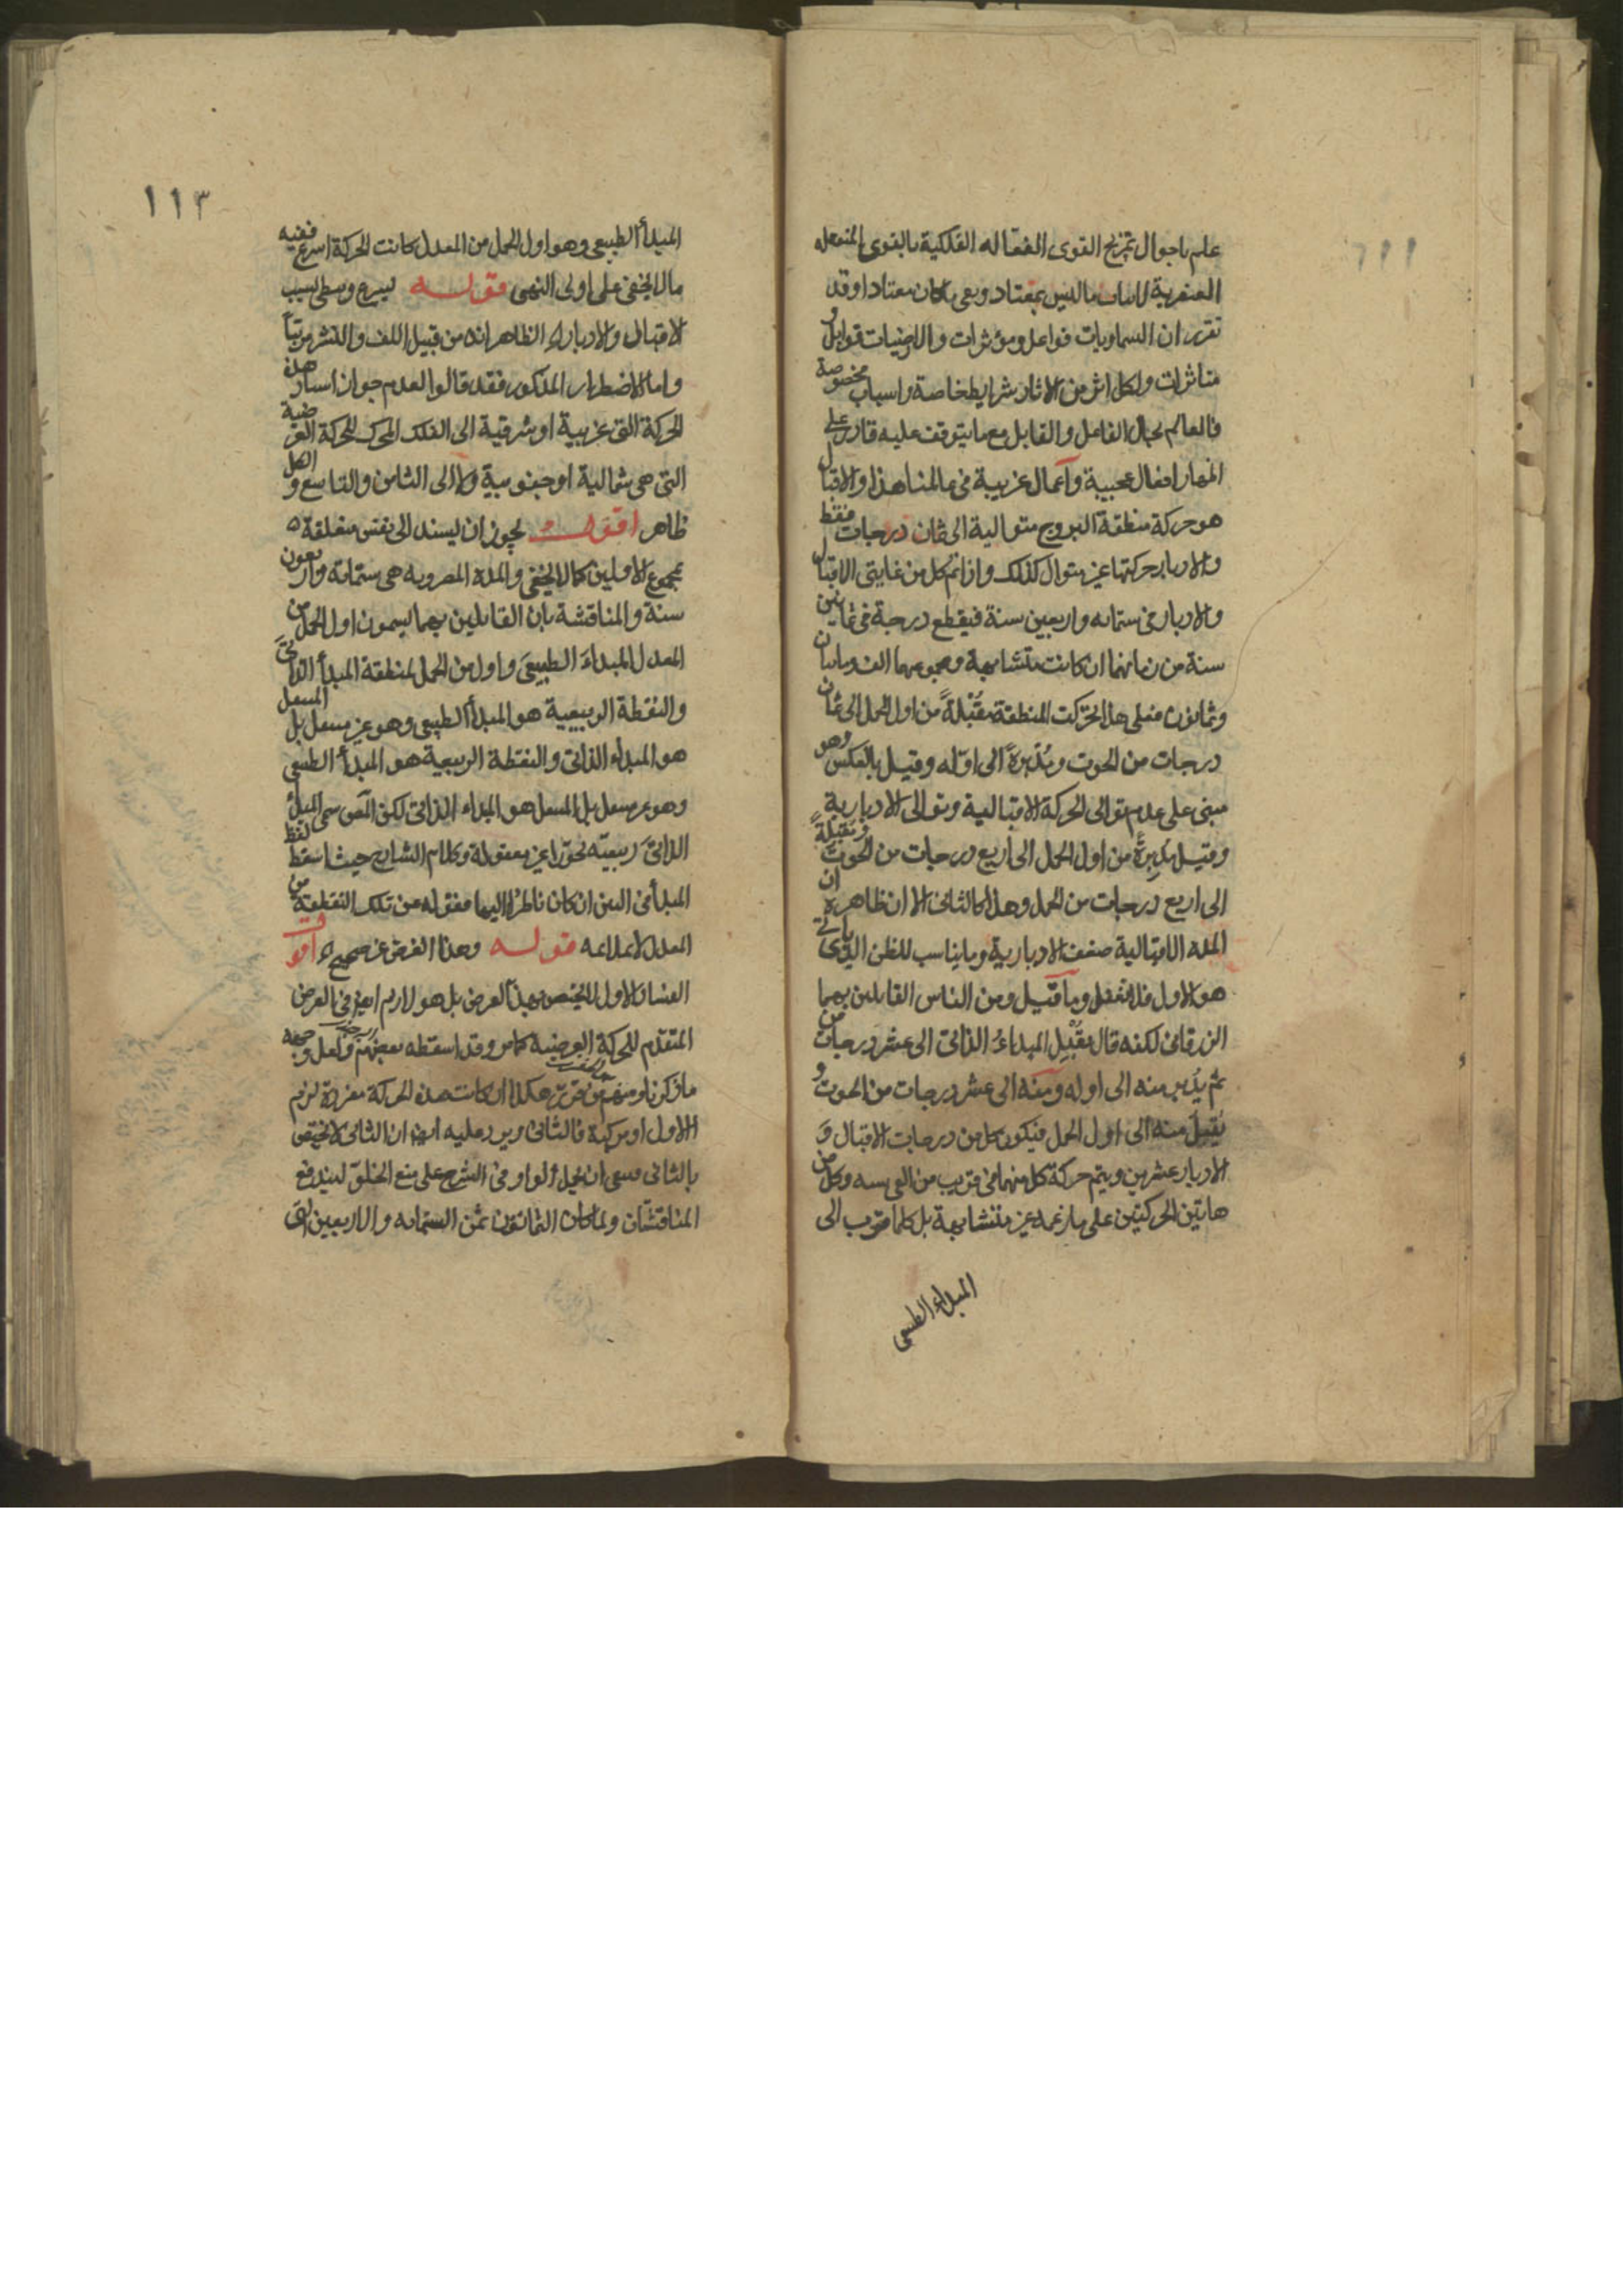 علم باحوال تمزيج القوى الفعاله الفلكية بالقوى المنفعله
العنصرية لاتيان ما ليس بمعتاد ومعى ما كان معتادا وقد
تقرر ان السماويات فواعل ومؤثرات والارضيات قوابل و
متاثرات ولكل اثر من الاثار شرايط خاصة واسباب مخصوصة
فالعالم بحال الفاعل والقابل مع ما يتوقف عليه قادر على
اظهار افعال عجيبة وآعمال غريبة فى عالمنا هذا والاقبال
هو حركة منطقة البروج متوالية الى ثمان درجات فقط
والادبار حركتها غير متوال كذلك واذا تم كل من غايتى الاقبال
والادبار فى ستمايه واربعين سنة فيقطع درجة فى ثمانين
سنة من زمانهما ان كانت متشابهة ومجموعهما الف ومايتان
وثمانون فعلى هذا تحركت المنطقة مقبلةً من اول الحمل الى ثمان
درجات من الحوت ومُدْبرةً الى اوّله وقيل بالعكس وهو
مبنى على عدم توالى الحركة الاقبالية وتوالى الادبارية
وقيل مدبرةً من اول الحمل الى اربع درجات من الحوت ومقبلةً
الى اربع درجات من الحمل وهذا كالثانى الا ان ظاهره ان
المدة الاقبالية ضعف الادبارية وما يناسب للظن الذى ياتى
هو الاول فلا تغفل وما قيل ومن الناس القايلين بهما
الزرقانى لكنه قال مقبل المبداءُ الذاتى الى عشر درجات من
ثم يدبر منه الى اوله ومنه الى عشر درجات من الحوت و
يُقبل منه الى اول الحمل فيكون كل من درجات الاقبال وَ
الادبار عشرين ويتم حركة كل منهما فى قريب من الفى سنه وكل من
هاتين الحركتين على ما زعمه غير متشابهة بل كلما قرب الى
المبداء الطبيعى
١١٣
المبدأ الطبيعى وهو اول الحمل من المعدل كانت الحركة اسرع ففيه
ما لا يخفى على اولى النهى قوله يسرع وسطى بسبب
الاقبال والادبار الظاهر انه من قبيل اللف والنشر مرتبًا
واما الاضطرار المذكور فقد قالوا لعدم جواز اسناد هذه
الحركة التى غربية او شرقية الى الفلك المحرك للحركة العرضية
التى هى شمالية او جنوبية ولا الى الثامن والتاسع و الكل
ظاهر اقول يجوز ان يسند الى نفس متعلقة
بمجموع الاولين كما لا يخفى والمدة المضروبه هى ستمايه واربعون
سنة والمناقشة بان القايلين بهما يسمون اول الحمل من
المعدل المبداءَ الطبيعىَ واول من الحمل لمنطقة المبدأ الذاتىَ
والنقطة الربيعية هو المبدأ الطبيعى وهو غير مسعل بل المسعل
هو المبداء الذاتى والنقطة الربيعية هو المبدأ الطبيعى
وهو غير مسعل بل المسعل هو المبداء الذاتى لكن المص سمى المبدأ
الذاتىَ ربيعيّه تجوّزا غير معقولة وكلام الشارح حيث اسقط لفظ
المبدأ فى البين ان كان ناظرًا اليها فقوله عن تلك النقطة من
المعدل لا يلايمه قوله وهذا الفرض غير صحيح اقول
الفساد الاول لا يختص بهذا العرض بل هو لازم ايضا فى العرض
المتقدّم للحركة العرضية كما مر وقد اسقطه بعضهم ولعل وجهه
ما ذكرنا ومنهم من قرّر هكذا ان كانت هذه الحركة مفردة لزم
الاول او مركبة فالثانى ويرد عليه ايضا ان الثانى لا يختص
بالثانى فينبغى ان يحمل الواو فى الشرح على منع الخلوّ ليندفع
المناقشتان ولما كان الثمانون ثمن الستمايه والاربعين التى